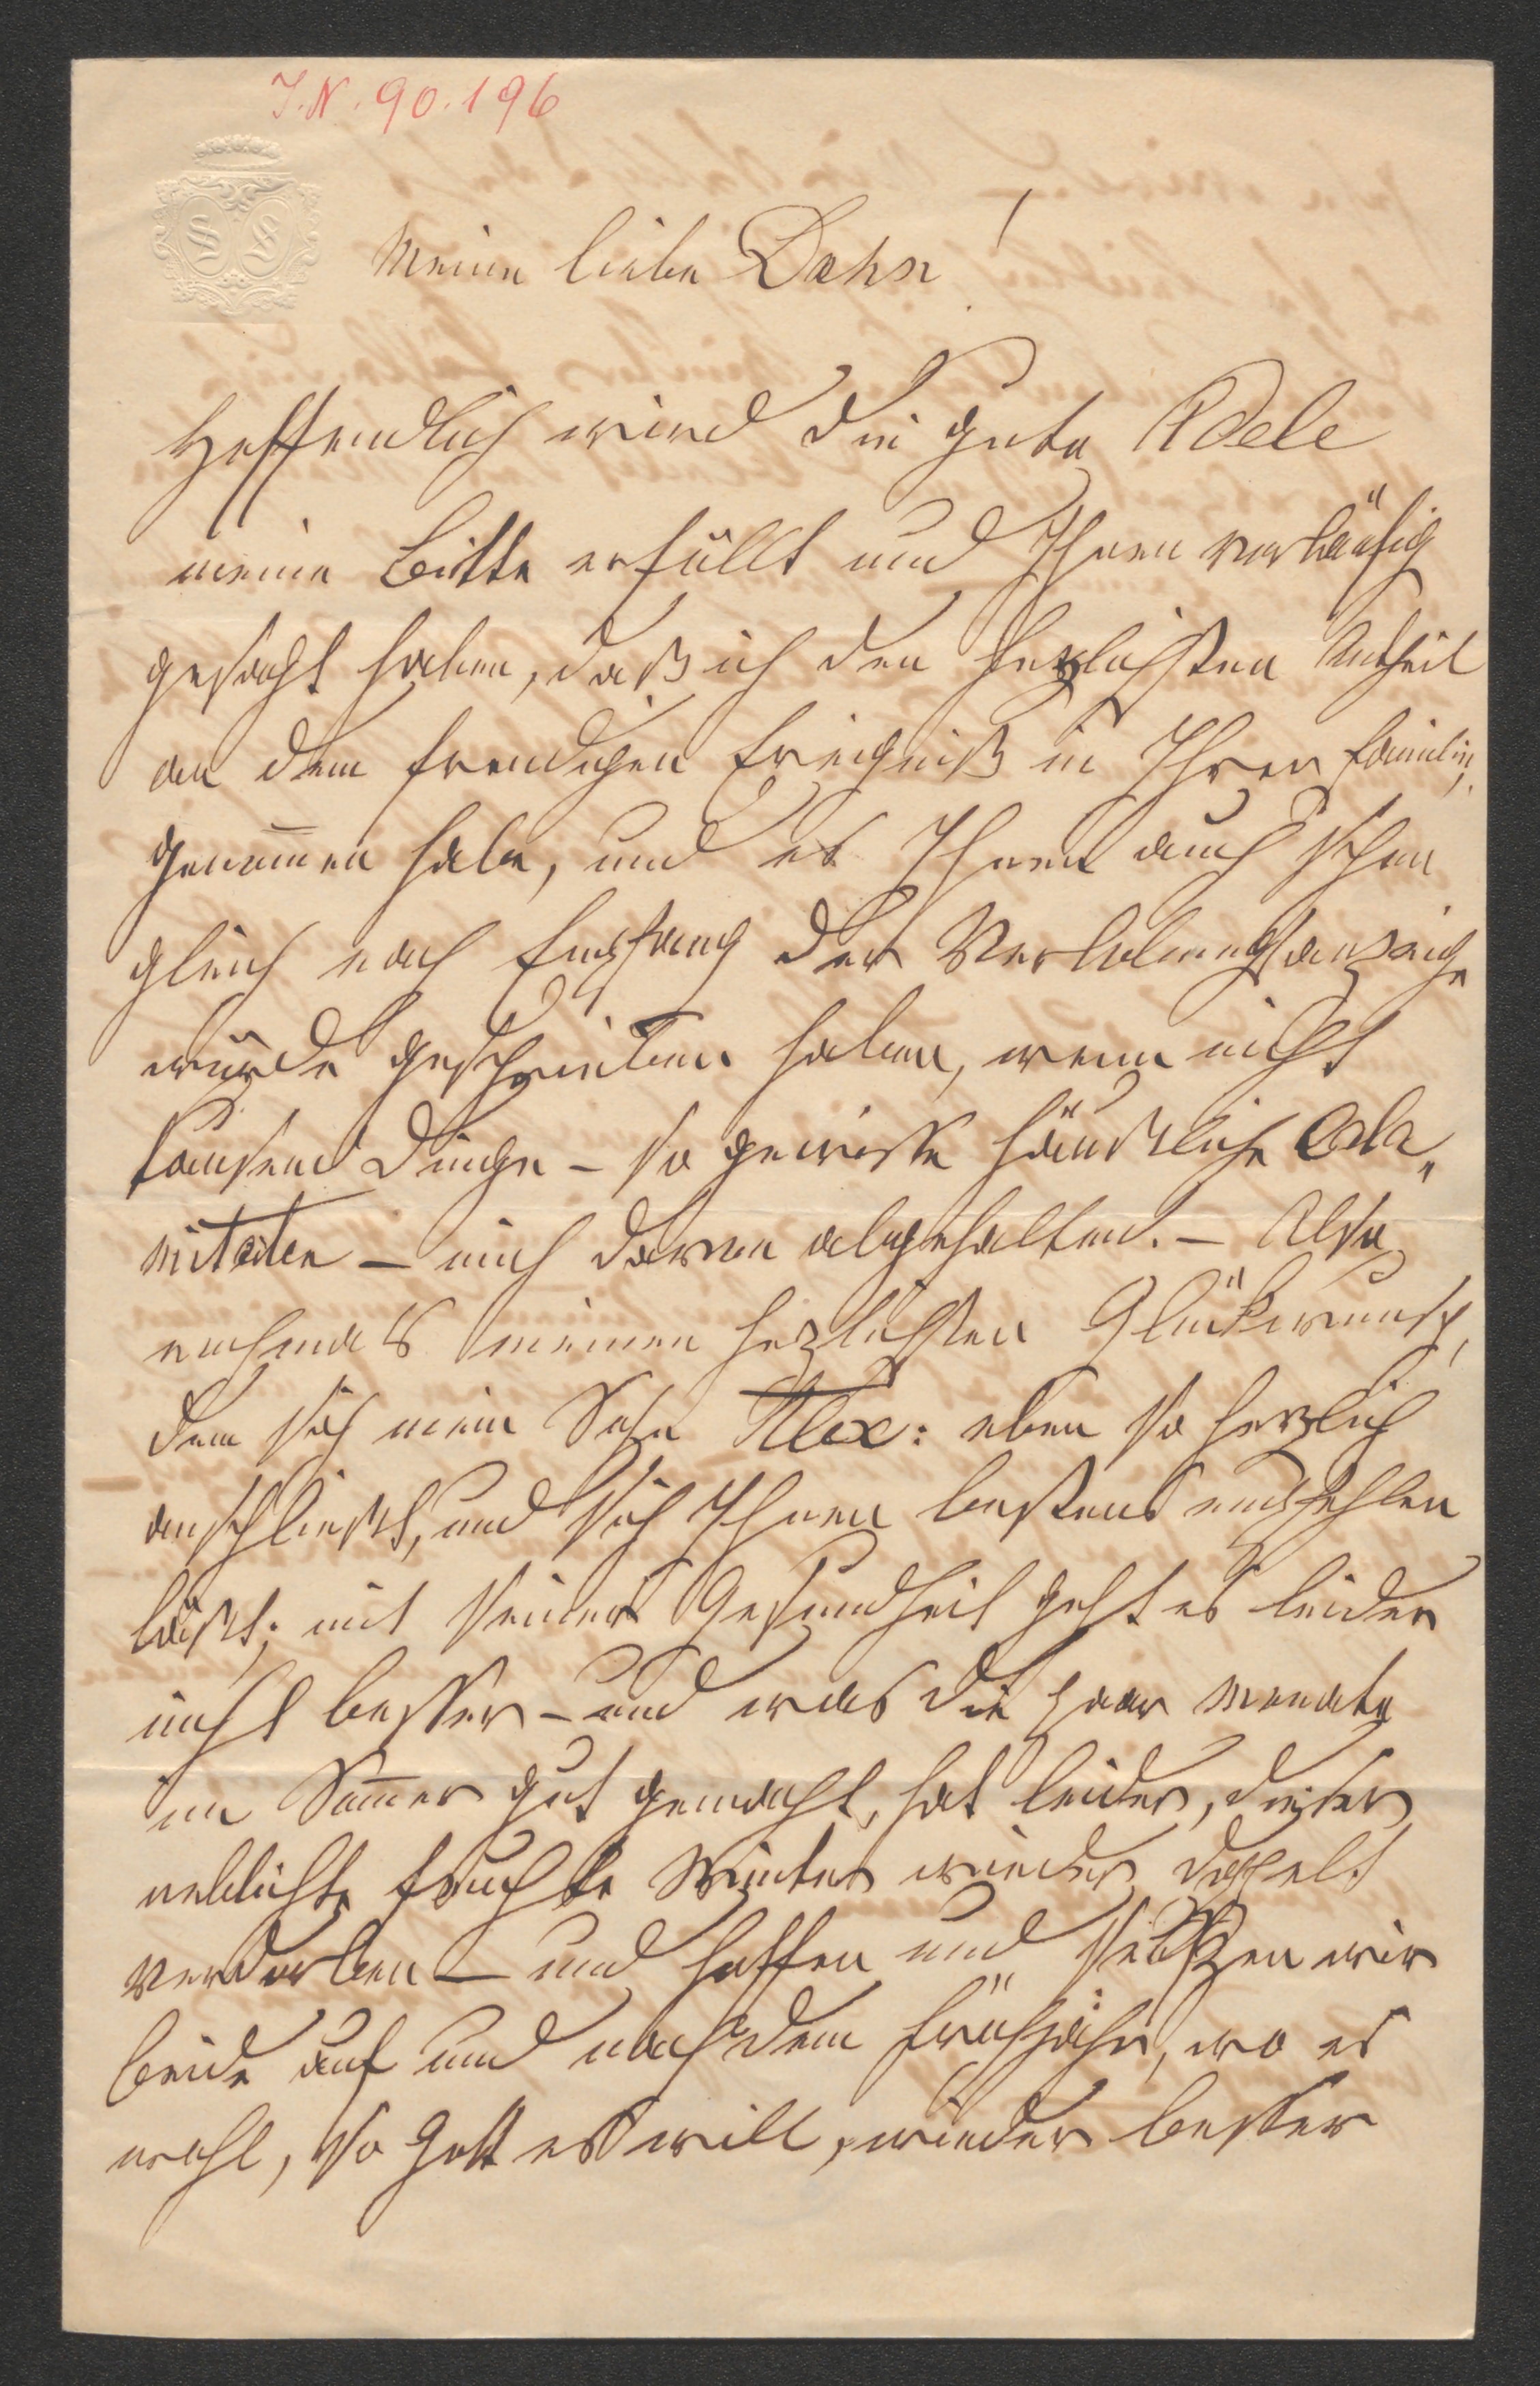 J.N. 90.196
S S
Meine liebe Dahn!
Hoffendlich wird die gute Adele
meine Bitte erfüllt und Ihnen vorläufig
gesagt haben, daß ich den herzlichsten Antheil
an dem freudigen Ereigniß in Ihrer Familie,
genom̅en habe, und es Ihnen auch schon
gleich nach Empfang der Verlobungsanzeige
würde geschrieben haben, wenn nicht
tausend Dinge – so gewisse häusliche Cala„
mitäten – mich davon abgehalten. – Also
nochmals meinen herzlichsten Glückwunsch,
dem sich mein Sohn Alex: eben so herzlich
anschließt, und sich Ihnen bestens empfehlen
läßt; mit seiner Gesundheit geht es leider
nicht besser – und was die paar Monate
im Som̅er gut gemacht, hat leider, dieser
neblichte feuchte Winter wieder doppelt
verdorben – und hoffen und seufzen wir
beide auf und nach dem Frühjahr, wo es
wohl, so Gott es will, wieder besser